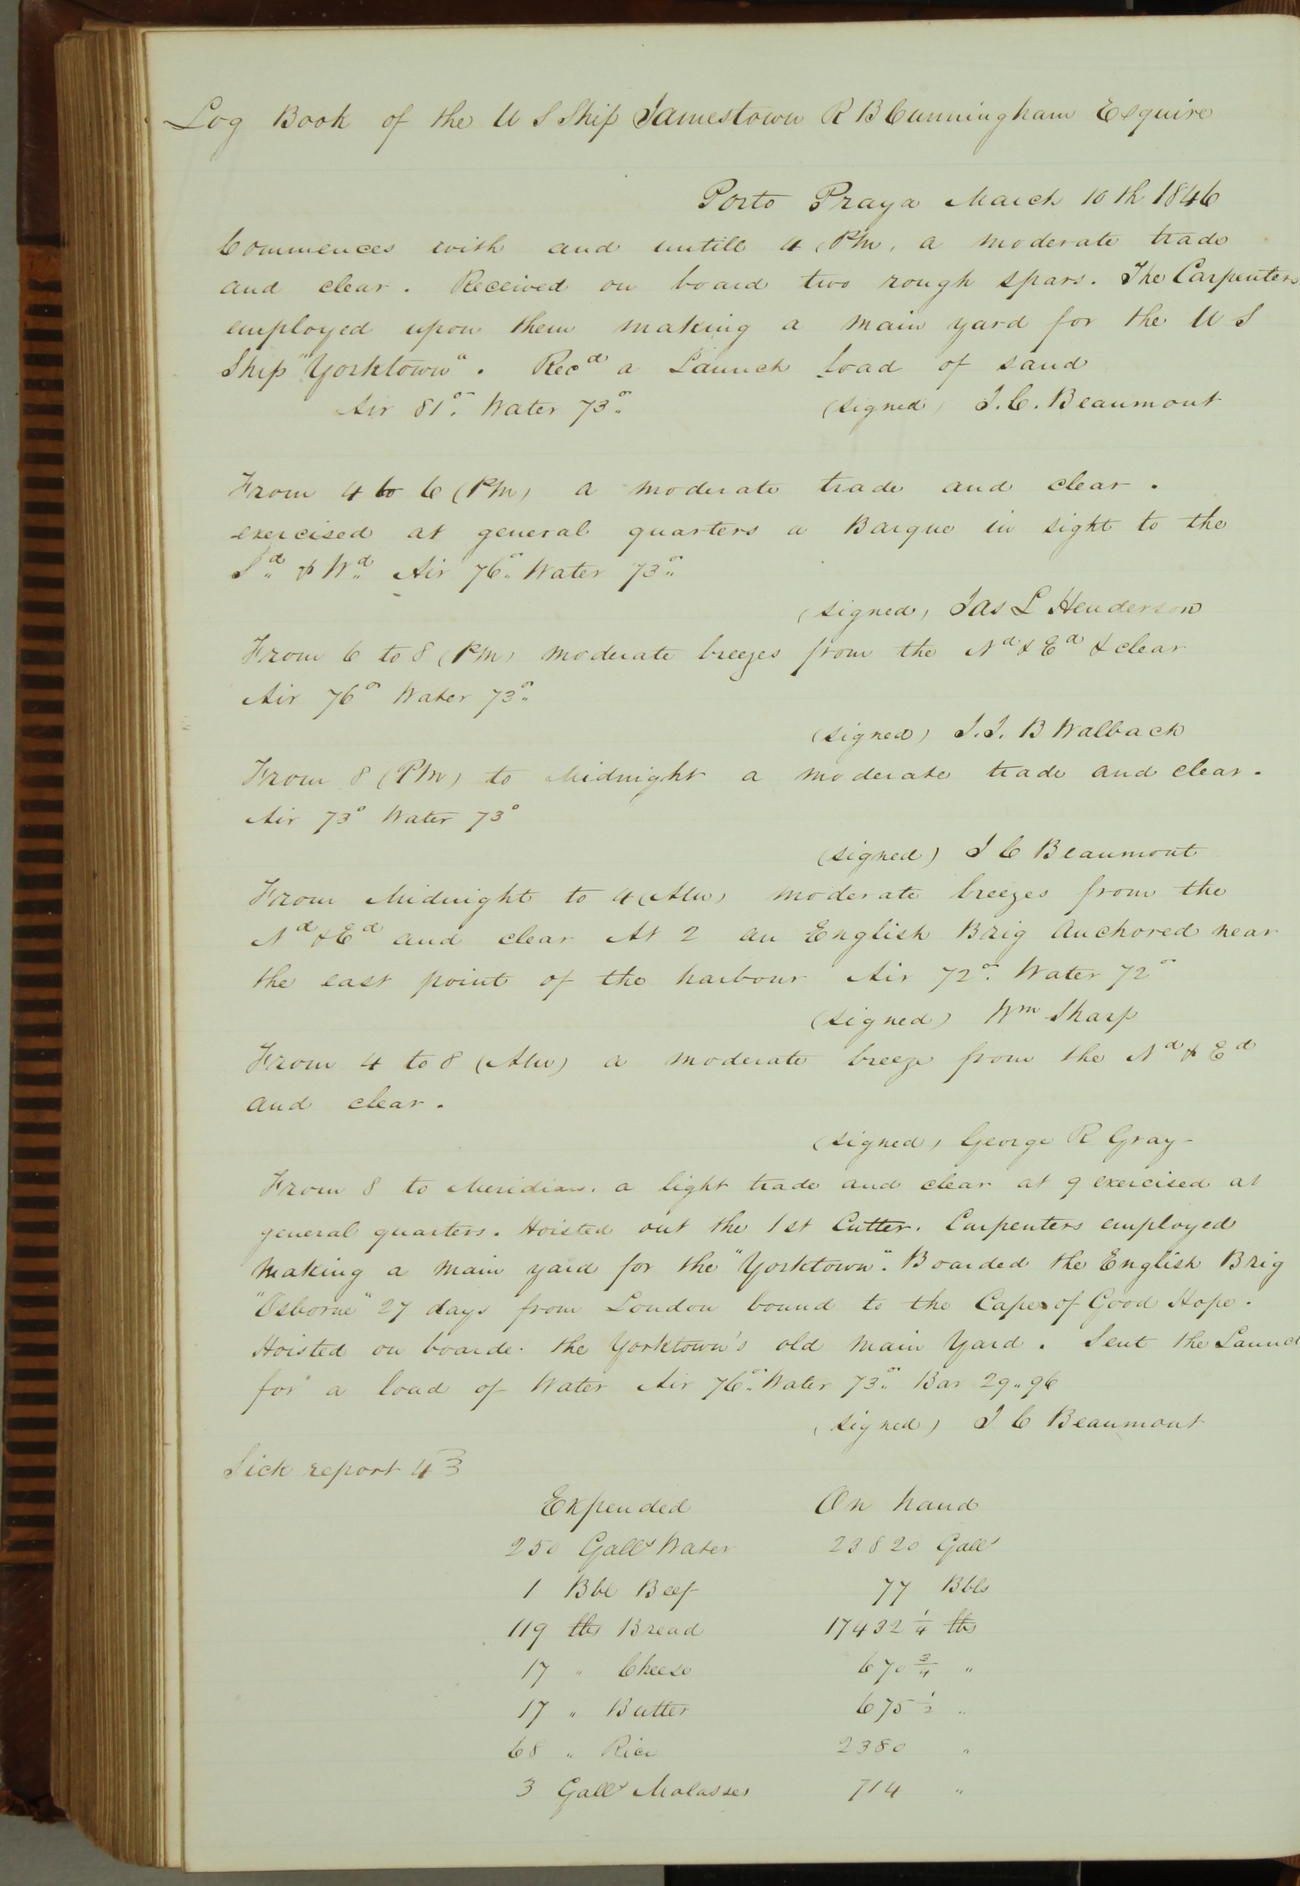 Log Book of the U S Ship Jamestown R B Cunningham Esquire
Porto Praya March 10th 1846
Commences with and untill 4 (PM) a moderate trade
and clear. Received on board two rough spars. The Carpenters
employed upon them making a main yard for the U S
Ship "Yorktown". Recd a Launch load of sand
Air 81° Water 73° (signed) J. C. Beaumont
From 4 to 6 (PM) a moderate trade and clear.
exercised at general quarters a Barque in sight to the
Sd & Wd Air 76° Water 73°
(signed) Jas L Henderson
From 6 to 8 (PM) moderate breezes from the Nd & Ed & clear
Air 76° Water 73°
(signed) J. J. B Walback
From 8 (PM) to Midnight a moderate trade and clear.
Air 73° Water 73°
(signed) J C Beaumont
From Midnight to 4 (AM) moderate breezes from the
Nd & Ed and clear At 2 an English Brig anchored near
the east point of the harbour Air 72° Water 72°
(signed) Wm Sharp
From 4 to 8 (AM) a moderate breeze from the Nd & Ed
and clear.
(signed) George R Gray
From 8 to Meridian. a light trade and clear at 9 exercised at
general quarters. Hoisted out the 1st Cutter. Carpenters employed
making a main yard for the "Yorktown". Boarded the English Brig
"Osborne" 27 days from London bound to the Cape of Good Hope.
Hoisted on boarde the Yorktown's old main yard. Sent the Launch
for a load of Water Air 76° Water 73° Bar 29.96
(signed) J C Beaumont
Sick report 43
Expended On hand
250 Galls Water 23820 Galls
1 Bbl Beef 77 Bbls
119 lbs Bread 17432 1/4 lbs
17 " Cheese 670 3/4 "
17 " Butter 675 1/2 "
68 " Rice 2380 "
3 Galls Molasses 714 "